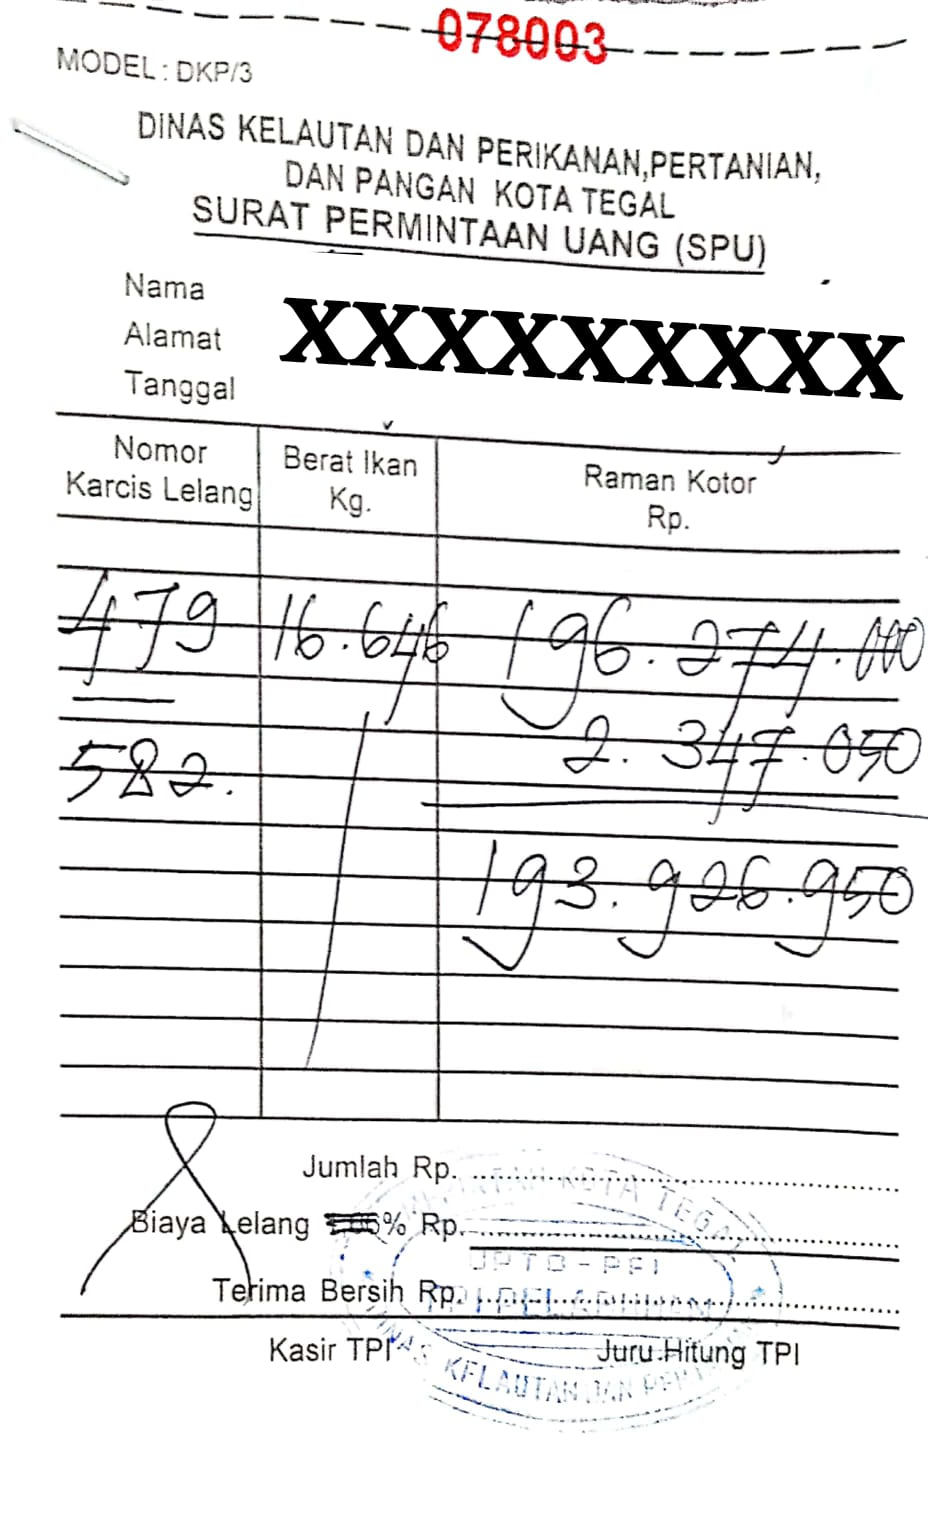 078003
MODEL : DKP/3
DINAS KELAUTAN DAN PERIKANAN,PERTANIAN,
DAN PANGAN KOTA TEGAL
SURAT PERMINTAAN UANG (SPU)
Nama
Alamat
XXXXXXXXXX
Tanggal
Nomor Karcis Lelang
Berat Ikan Kg.
Raman Kotor Rp.
479 16.646 196.274.000
2.347.050
582.
193.926.950
Jumlah Rp.
Biaya Lelang % Rp.
Terima Bersih Rp.
Kasir TPI Juru Hitung TPI
KOTA TEGAL
UPTD-PPI
TPI PELABUHAN
DINAS KELAUTAN DAN